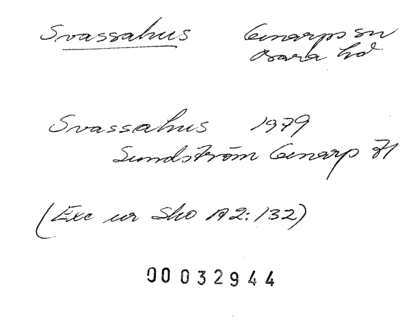 Svassahus Genarps sn
Bara hd
Svassahus 1979
Sundström Genarp 71
(Exc ur Sko A2:132)
00032944